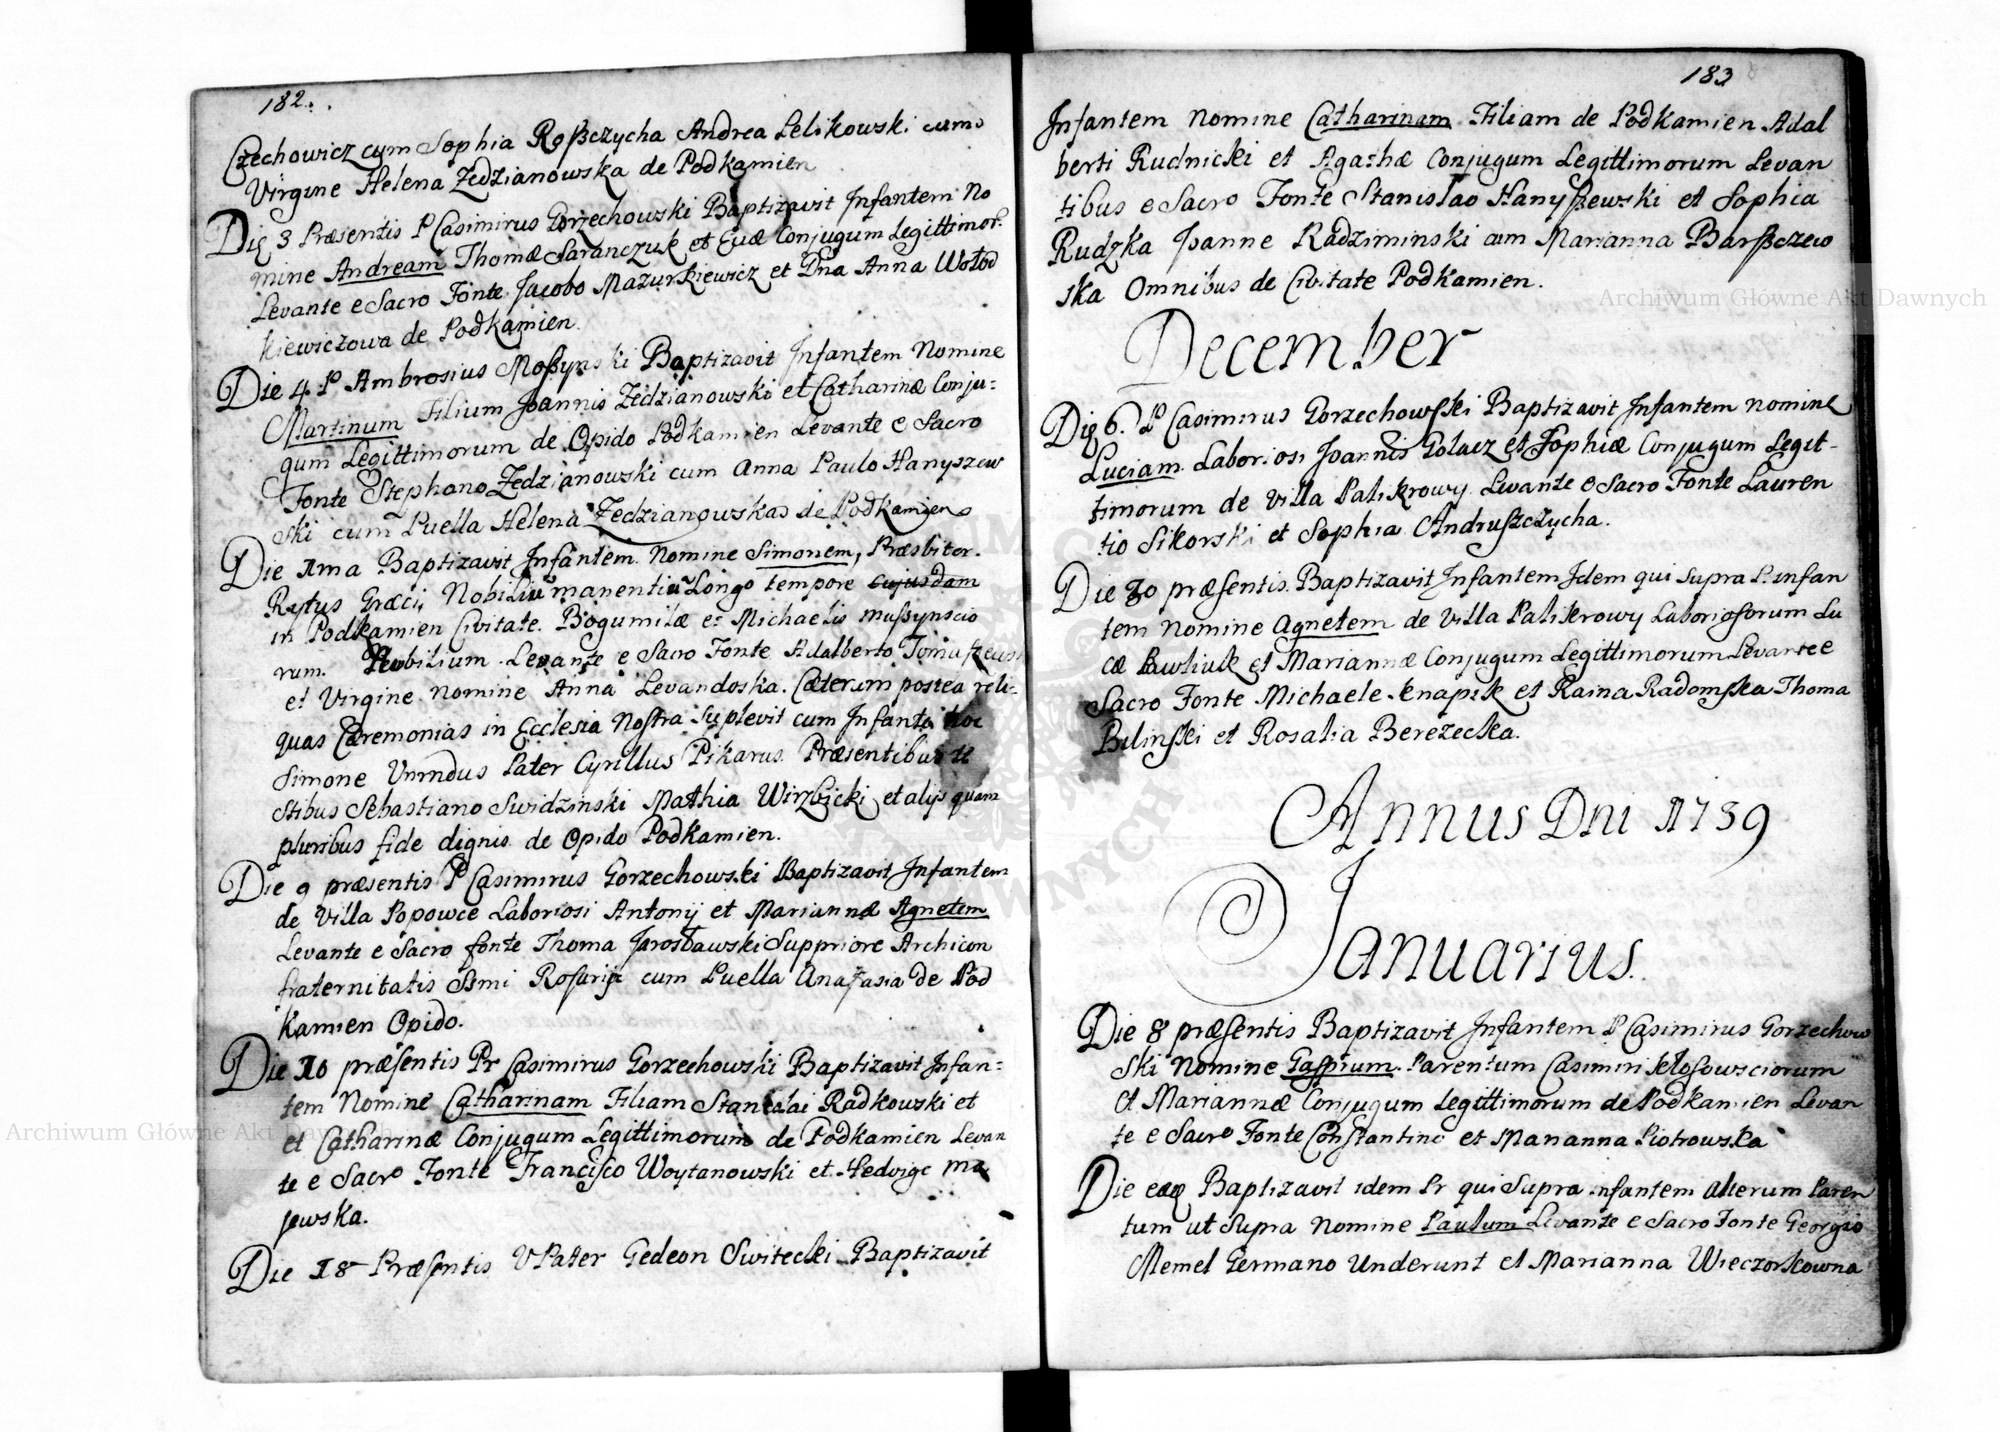 182.
Czechowicz cym Sophia Roßczycha Andrea Lelikowski cum
Virgine Helena Zedzianowska de Podkamien
Die 3 Præsentis P Casimirus Gorzechowski Baptizavit Infantem No
mine Andream Thomæ Saranczuk et Evæ Conjugum Legittimor.
Levante e Sacro Fonte Jacobo Mazurkiewicz et Dna Anna Wołod
kiewiczowa de Podkamien.
Die 4 P Ambrosius Moßynski Baptizavit Infantem Nomine
Martinum Filium Joannis Zedzianowski et Catharinæ Conju=
gum Legittimorum de Opido Podkamien Levante e Sacro
Fonte Stephano Zedzianowski cum Anna Paulo Hanyszew
ski cum Puella Helena Zedzianowskas de Podkamien
Die 11ma Baptizavit Infantem Nomine Simonem, Præsbiter.
Ritus Græci, Nobiliū manentiū Longo tempore cujusdam
in Podkamien Civitate. Bogumilæ et Michaelis Mußynscio
rum. Nobilium. Levante e Sacro Fonte Adalberto Tomaszewsk
et Virgine Nomine Anna Levandoska. Cæterum postea reli=
quas Cæremonias in Ecclesia Nostra Suplevit cum Infante hoc
Simone Unındus Pater Cyrillus Pikarus. Præsentibus te
stibus Sebastiano Swidzinski Mathia Wirzbicki et alijs quam
pluribus fide dignis de Opido Podkamien.
Die 9 præsentis P Casimirus Gorzechowski Baptizavit Infantem
de Villa Popowce Laboriosi Antonij et Mariannæ Agnetem
Levante e Sacro fonte Thoma Jarosławski Suppriore Archicon
fraternitatis SSmi Rosarij cum Puella Anastasia de Pod
kamien Opido.
Die 16 præsentis Pr Casimirus Gorzechowski Baptizavit Infan=
tem Nomine Catharinam Filiam Stanislai Radkowski et
et Catharinæ Conjugum Legittimorum de Podkamien Levan
te e Sacro Fonte Francisco Woytanowski et Hedvige Ma
jewska.
Die 18 Præsentis V Pater Gedeon Switecki Baptizavit
183
Infantem Nomine Catharinam Filiam de Podkamien Adal
berti Rudnicki et Agathæ Conjugum Legittimorum Levan
tibus e Sacro Fonte Stanislao Hanyßewski et Sophia
Rudzka Joanne Radziminski cum Marianna Barßczew
ska Omnibus de Civitate Podkamien.
December
Die 6. P Casimirus Gorzechowski Baptizavit Infantem nomine
Luciam Laboriosi Joannis Golacz et Sophiæ Conjugum Legit-
timorum de Villa Palikrowy Levante e Sacro Fonte Lauren
tio Sikorski et Sophia Andruszczycha.
Die 30 præsentis Baptizavit Infantem Idem qui supra P. infan
tem Nomine Agnetem de Villa Palikrowy Laboriosorum Lu
cæ Pawliuk et Mariannæ Conjugum Legittimorum Levante e
Sacro Fonte Michaele Knapik et Raina Radomska Thoma
Bilinski et Rosalia Berezecka.
Annus Dni 1739
Januarius.
Die 8 præsentis Baptizavit Infantem P Casimirus Gorzechow
ski Nomine Gasprum. Parentum Casimiri Kłosowsciorum
et Mariannæ Conjugum Legittimorum de Podkamien Levan
te e Sacro Fonte Constantino et Marianna Piotrowska
Die eaq Baptizavit idem Pr qui Supra infantem alterum Paren
tum ut Supra Nomine Paulum Levante e Sacro Fonte Georgio
Memel Germano Underunt et Marianna Wieczorkowna
Archiwum Główne Akt Dawnych
Archiwum Główne Akt Dawnych